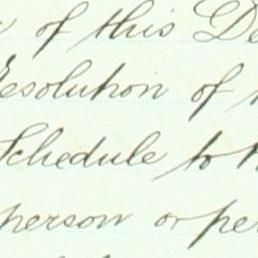 of this De
esolution of
Schedule to t
person or per